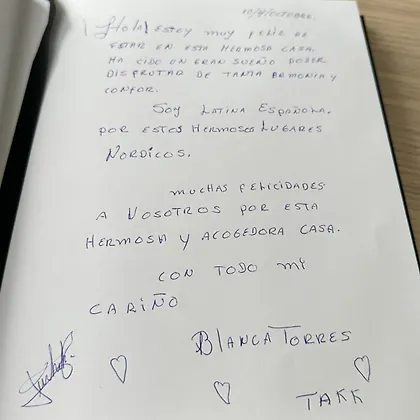 10/9/OCTUBRE.
¡Hola! ESTOY MUY FELIZ DE
ESTAR EN ESTA HERMOSA CASA.
HA CIDO UN GRAN SUEÑO PODER
DISFRUTAR DE TANTA ARMONIA Y
CONFOR.
SOY LATINA ESPAÑOLA.
POR ESTOS HERMOSOS LUGARES
NORDICOS.
MUCHAS FELICIDADES
A VOSOTROS POR ESTA
HERMOSA Y ACOGEDORA CASA.
CON TODO MI
CARIÑO
BLANCA TORRES
TAKK